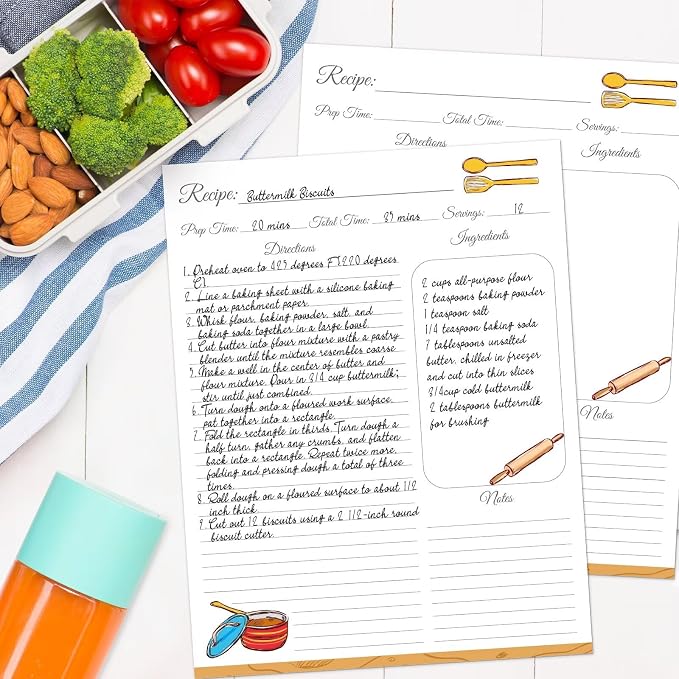 Recipe:
Prep Time: Total Time: Servings:
Directions Ingredients
Notes
Recipe: Buttermilk Biscuits
Prep Time: 20 mins Total Time: 35 mins Servings: 12
Directions
1. Preheat oven to 425 degrees F[220 degrees
C]
2. Line a baking sheet with a silicone baking
mat or parchment paper.
3. Whisk flour, baking powder, salt, and
baking soda together in a large bowl.
4. Cut butter into flour mixture with a pastry
blender until the mixture resembles coarse
5. Make a well in the center of butter and
flour mixture. Pour in 3/4 cup buttermilk;
stir until just combined.
6. Turn dough onto a floured work surface,
pat together into a rectangle.
7. Fold the rectangle in thirds. Turn dough a
half turn, gather any crumbs, and flatten
back into a rectangle. Repeat twice more,
folding and pressing dough a total of three
times.
8. Roll dough on a floured surface to about 1/2
inch thick.
9. Cut out 12 biscuits using a 2 1/2-inch round
biscuit cutter.
Ingredients
2 cups all-purpose flour
2 teaspoons baking powder
1 teaspoon salt
1/4 teaspoon baking soda
7 tablespoons unsalted
butter, chilled in freezer
and cut into thin slices
3/4cup cold buttermilk
2 tablespoons buttermilk
for brushing
Notes